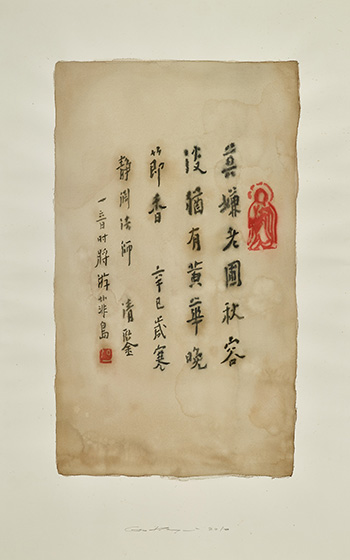 莫嫌老圃秋容
淡猶有黃華晚
節香 辛巳歲寒
靜法師 清鑒
一音时將游菲島